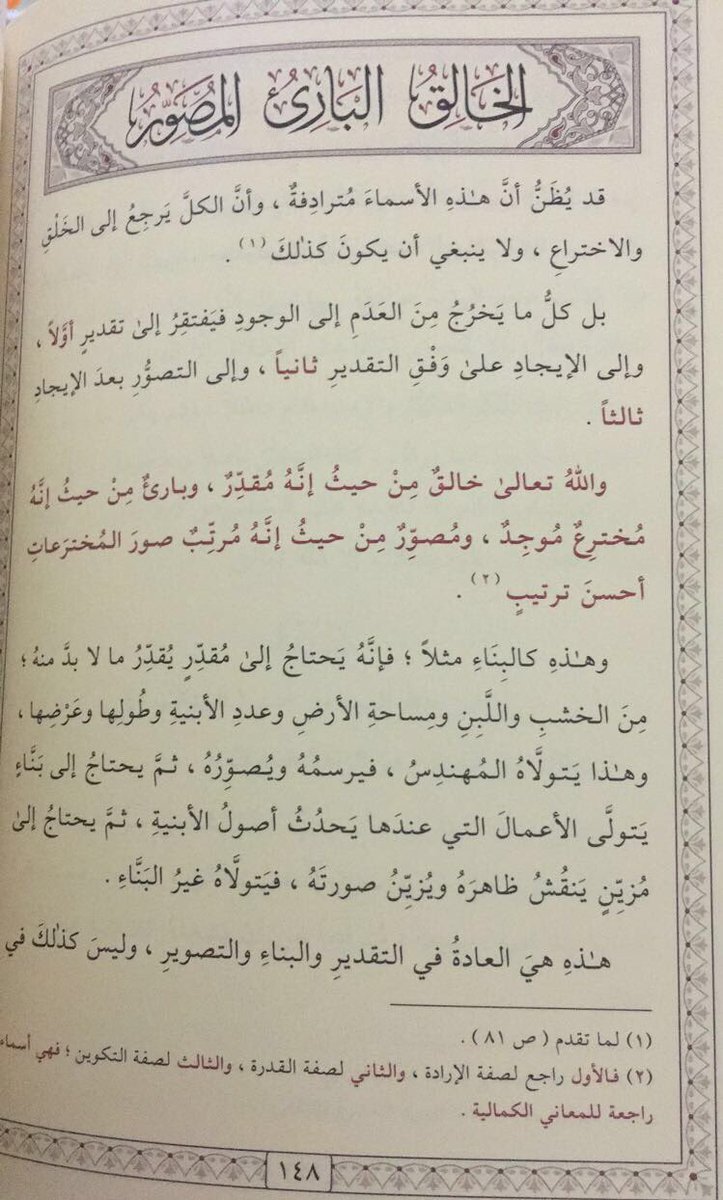 الخَالِقُ البَارِئُ المُصَوِّرُ
قد يُظَنُّ أنَّ هـٰذهِ الأسماءَ مُترادِفةٌ ، وأنَّ الكلَّ يَرجِعُ إلى الخَلْقِ
والاختراعِ ، ولا ينبغي أن يكونَ كذٰلكَ (١) .
بل كلُّ ما يَخرُجُ مِنَ العَدَمِ إلى الوجودِ فيَفتقِرُ إلىٰ تقديرٍ أوَّلاً ،
وإلى الإيجادِ علىٰ وَفْقِ التقديرِ ثانياً ، وإلى التصوُّرِ بعدَ الإيجادِ
ثالثاً .
واللهُ تعالىٰ خالقٌ مِنْ حيثُ إنَّهُ مُقدِّرٌ ، وبارئٌ مِنْ حيثُ إنَّهُ
مُخترِعٌ مُوجِدٌ ، ومُصوِّرٌ مِنْ حيثُ إنَّهُ مُرتِّبٌ صورَ المُخترَعاتِ
أحسنَ ترتيبٍ (٢) .
وهـٰذهِ كالبِنَاءِ مثلاً ؛ فإنَّهُ يَحتاجُ إلىٰ مُقدِّرٍ يُقدِّرُ ما لا بدَّ منهُ ؛
مِنَ الخشبِ واللَّبِنِ ومِساحةِ الأرضِ وعددِ الأبنيةِ وطُولِها وعَرْضِها ،
وهـٰذا يَتولَّاهُ المُهندِسُ ، فيرسمُهُ ويُصوِّرُهُ ، ثمَّ يحتاجُ إلى بَنَّاءٍ
يَتولَّى الأعمالَ التي عندَها يَحدُثُ أصولُ الأبنيةِ ، ثمَّ يحتاجُ إلىٰ
مُزيِّنٍ يَنقُشُ ظاهرَهُ ويُزيِّنُ صورتَهُ ، فيَتولَّاهُ غيرُ البَنَّاءِ .
هـٰذهِ هيَ العادةُ في التقديرِ والبناءِ والتصويرِ ، وليسَ كذٰلكَ في
(١) لما تقدم ( ص ٨١ ) .
(٢) فالأول راجع لصفة الإرادة ، والثاني لصفة القدرة ، والثالث لصفة التكوين ؛ فهي أسماء
راجعة للمعاني الكمالية .
١٤٨